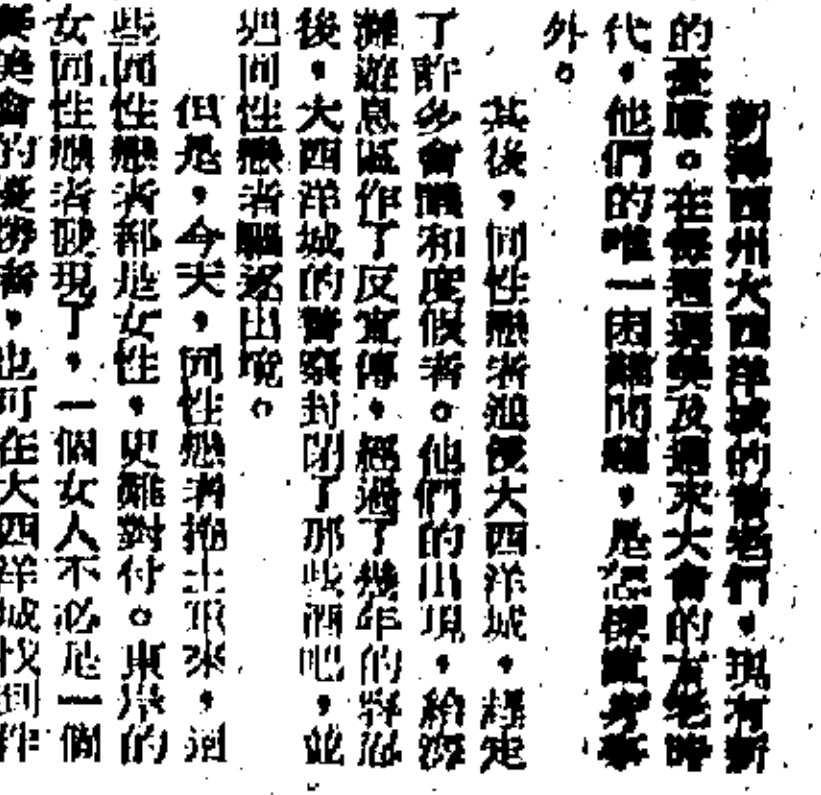 新澤西州大西洋城的會老們，現有新
的憂慮。在每週選美及週末大會的古老時
代，他們的唯一困難問題，是標傑選身事
外。
其後，同性戀者迴後大西洋城，經定
了許多會議和度假者。他們的出現，給沙
灘遊息區作了反宣傳，經過了幾年的對忍
後，大西洋城的警察封閉了那些酒吧，並
把同性戀者驅逐出境。
但是，今天，同性戀者捲土重來，這
些同性戀者都是女性，更難對付。東岸的
女同性戀者發現了，一個女人不必是一個
美會的競勝者，也可在大西洋城找到作